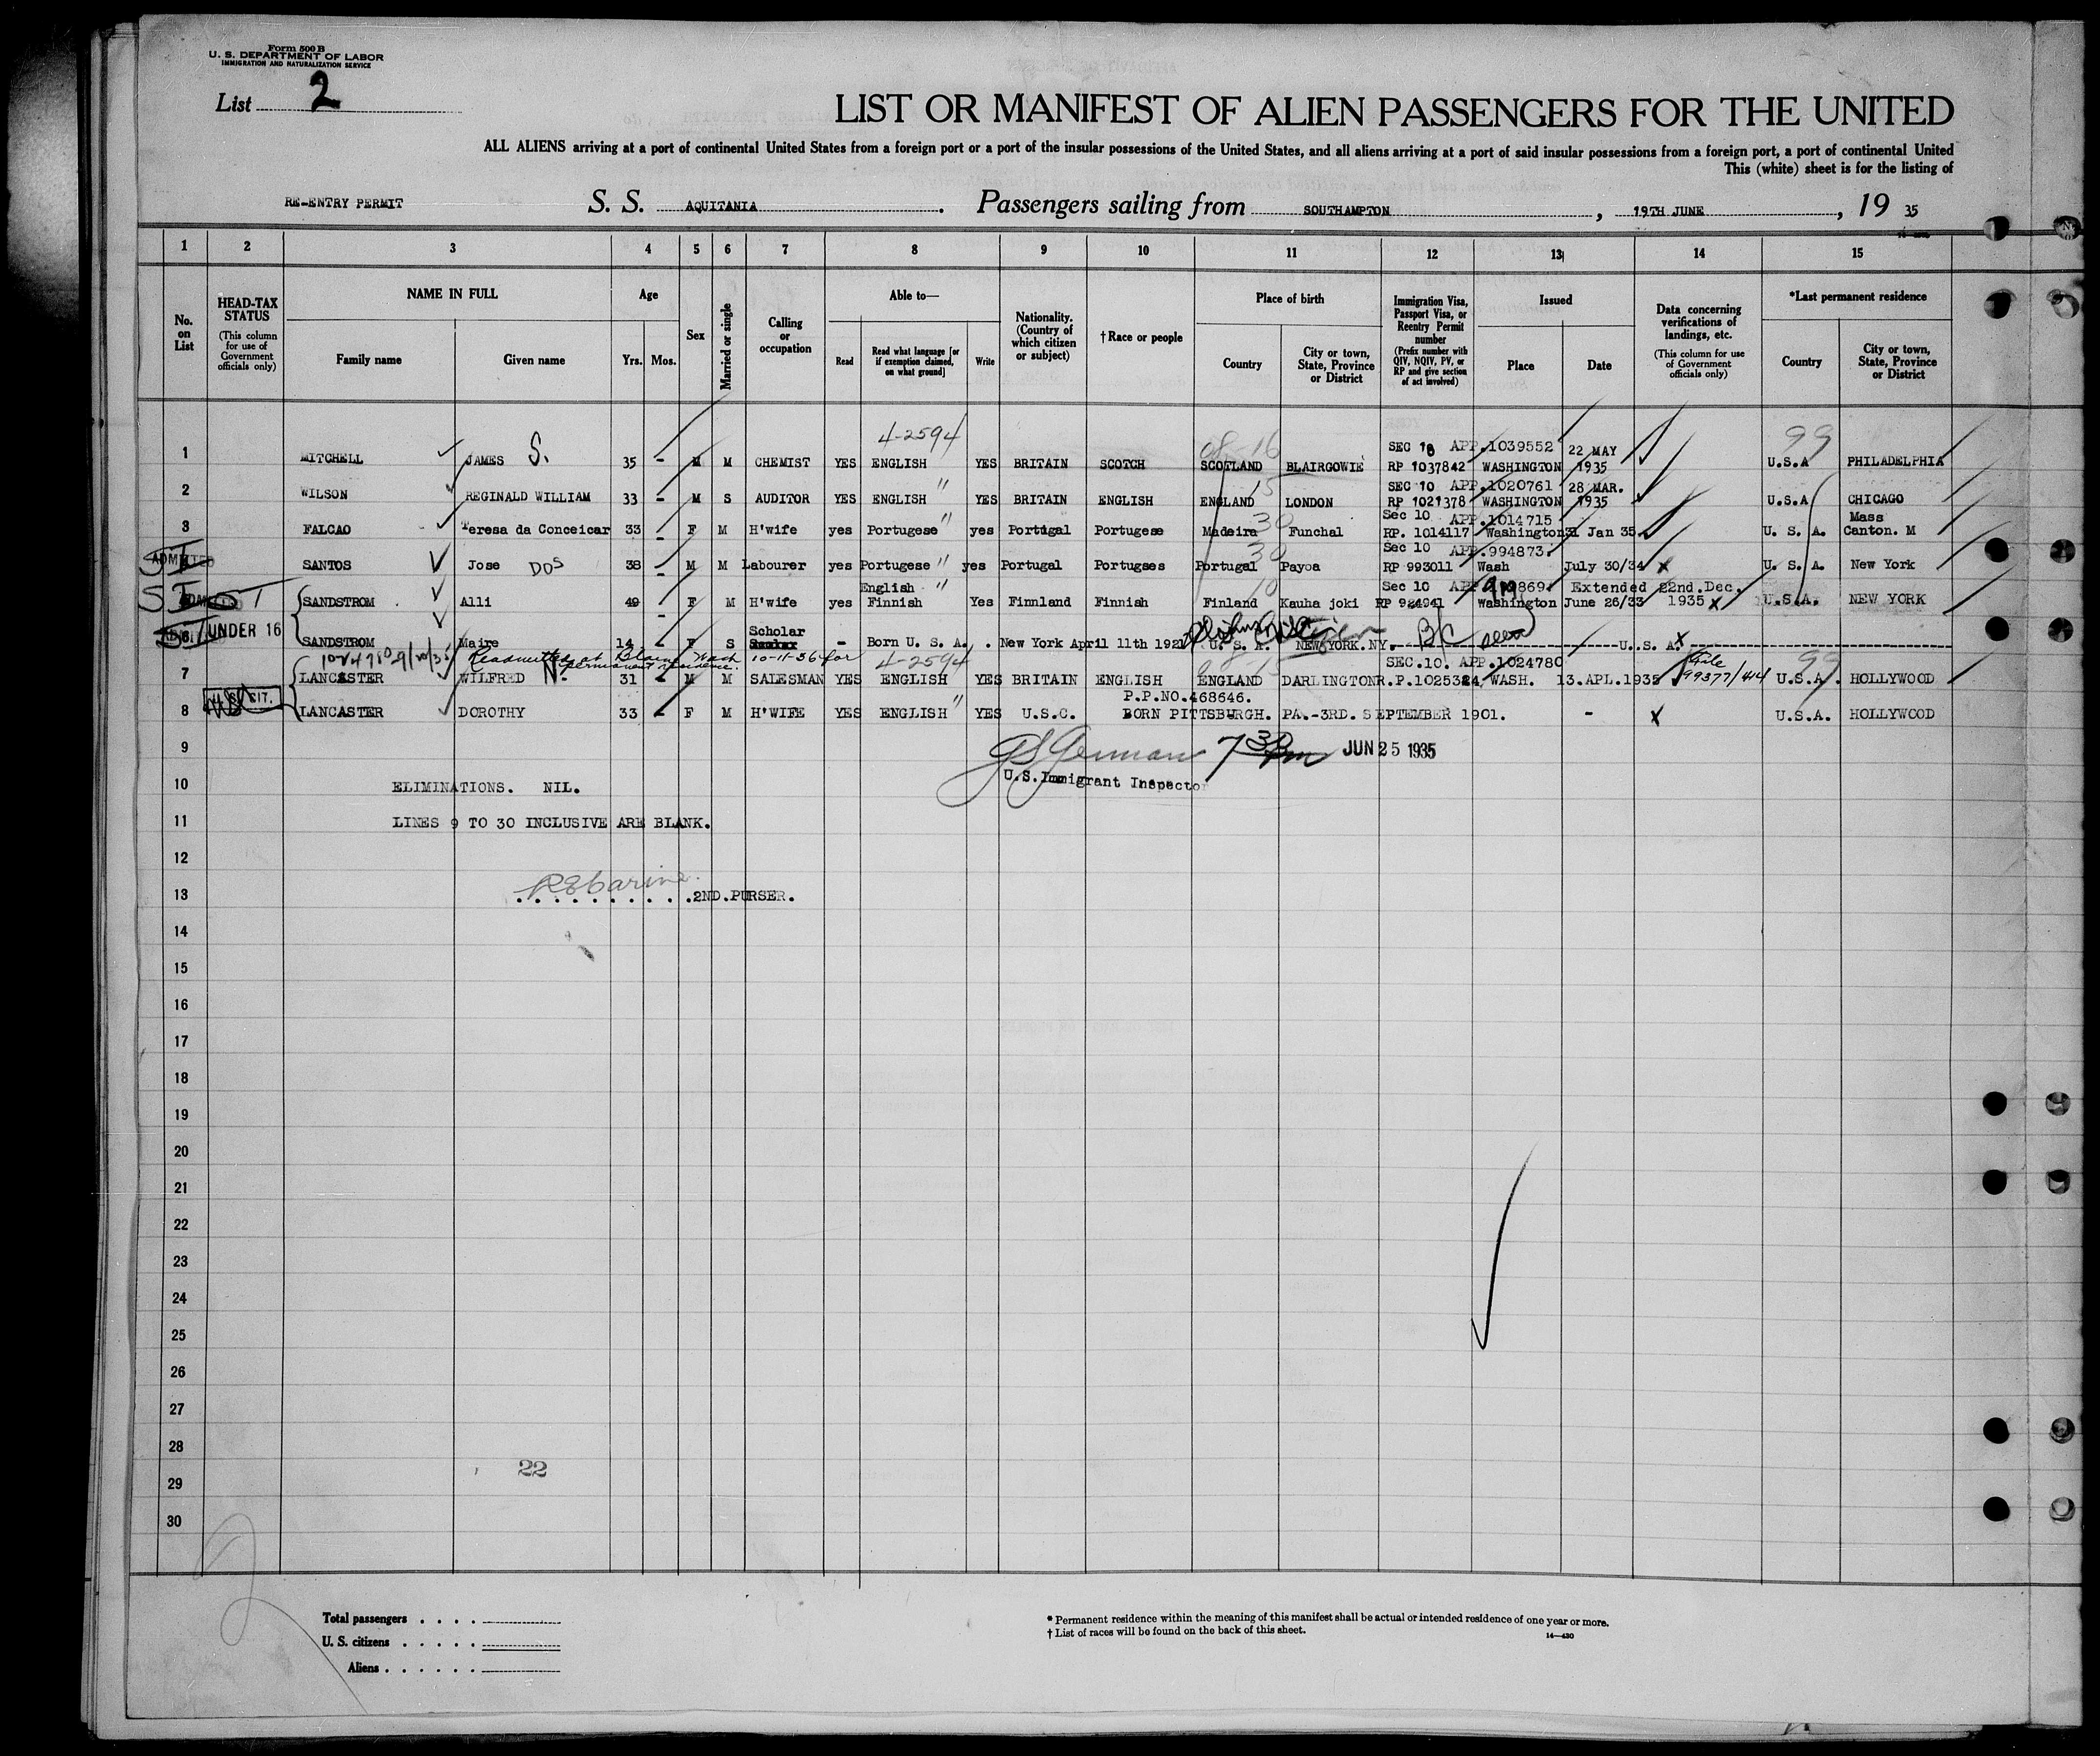 Form 500 B
U. S. DEPARTMENT OF LABOR
IMMIGRATION AND NATURALIZATION SERVICE
List 2
LIST OR MANIFEST OF ALIEN PASSENGERS FOR THE UNITED
ALL ALIENS arriving at a port of continental United States from a foreign port or a port of the insular possessions of the United States, and all aliens arriving at a port of said insular possessions from a foreign port, a port of continental United
This (white) sheet is for the listing of
RE-ENTRY PERMIT S. S. AQUITANIA. Passengers sailing from SOUTHAMPTON, 19TH JUNE, 19 35
1 2 3 4 5 6 7 8 9 10 11 12 13 14 15
No. on List
HEAD-TAX STATUS (This column for use of Government officials only)
NAME IN FULL Family name Given name
Age Yrs. Mos.
Sex
Married or single
Calling or occupation
Able to— Read Read what language [or if exemption claimed, on what ground] Write
Nationality. (Country of which citizen or subject)
†Race or people
Place of birth Country City or town, State, Province or District
Immigration Visa, Passport Visa, or Reentry Permit number (Prefix number with QIV, NQIV, PV, or RP and give section of act involved)
Issued Place Date
Data concerning verifications of landings, etc. (This column for use of Government officials only)
*Last permanent residence Country City or town, State, Province or District
4-2594 08-16 SEC 10 APP.1039552 22 MAY 99
1 MITCHELL JAMES S. 35 - M M CHEMIST YES ENGLISH YES BRITAIN SCOTCH SCOTLAND BLAIRGOWIE RP 1037842 WASHINGTON 1935 U.S.A PHILADELPHIA
15 SEC 10 APP.1020761 28 MAR.
2 WILSON REGINALD WILLIAM 33 - M S AUDITOR YES ENGLISH " YES BRITAIN ENGLISH ENGLAND LONDON RP 1021378 WASHINGTON 1935 U.S.A CHICAGO
30 Sec 10 APP.1014715 Mass
3 FALCAO Teresa da Conceicar 33 - F M H'wife yes Portugese " yes Portugal Portugese Madeira Funchal RP. 1014117 Washington 31 Jan 35 U. S. A. Canton. M
30 Sec 10 APP.994873
SI ADMITTED SANTOS Jose DOS 38 - M M Labourer yes Portugese " yes Portugal Portugses Portugal Payoa RP 993011 Wash July 30/34 x U. S. A. New York
English " 10 Sec 10 Extended 22nd.Dec.
SI SANDSTROM Alli 49 F M H'wife yes Finnish Yes Finnland Finnish Finland Kauha joki Washington June 26/33 1935 x U.S.A. NEW YORK
Scholar
SI UNDER 16 SANDSTROM Maire 14 - F S - Born U. S. A. . New York April 11th 1921 U. S. A. NEW YORK. NY. BC seen U. S. A. x
Readmitted at Blaine Wash 10-11-36 for permanent residence. 4-2594 08-15 SEC.10. APP.1024780 File 99377/414 99
7 LANCASTER WILFRED N. 31 - M M SALESMAN YES ENGLISH YES BRITAIN ENGLISH ENGLAND DARLINGTON R.P.1025324 WASH. 13.APL.1935 U.S.A. HOLLYWOOD
P.P.NO.468646.
8 U.S. CIT. LANCASTER DOROTHY 33 - F M H'WIFE YES ENGLISH " YES U.S.C. BORN PITTSBURGH. PA.-3RD. SEPTEMBER 1901. - x U.S.A. HOLLYWOOD
9 730 pm JUN 25 1935
U.S.Immigrant Inspector
10 ELIMINATIONS. NIL.
11 LINES 9 TO 30 INCLUSIVE ARE BLANK.
12
13 .2ND.PURSER.
14
15
16
17
18
19
20
21
22
23
24
25
26
27
28
22
29
30
Total passengers . . . .
U. S. citizens . . . . .
Aliens . . . . . .
* Permanent residence within the meaning of this manifest shall be actual or intended residence of one year or more.
† List of races will be found on the back of this sheet.
14—430